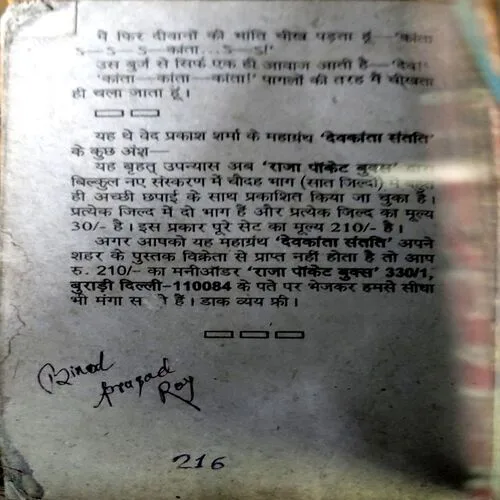 मैं फिर दीवानों की भांति चीख पड़ता हूं—'कांता
S—S—S—कांता...S—S!'
उस बुर्ज से सिर्फ एक ही आवाज आती है—'देव!'
'कांता—कांता—कांता!' पागलों की तरह मैं चीखता
ही चला जाता हूं।
यह थे वेद प्रकाश शर्मा के महाग्रंथ 'देवकांता संतति'
के कुछ अंश—
यह बृहत् उपन्यास अब 'राजा पॉकेट बुक्स'
बिल्कुल नए संस्करण में चौदह भाग (सात जिल्दों) में
ही अच्छी छपाई के साथ प्रकाशित किया जा चुका है।
प्रत्येक जिल्द में दो भाग हैं और प्रत्येक जिल्द का मूल्य
30/- है। इस प्रकार पूरे सेट का मूल्य 210/- है।
अगर आपको यह महाग्रंथ 'देवकांता संतति' अपने
शहर के पुस्तक विक्रेता से प्राप्त नहीं होता है तो आप
रु. 210/- का मनीऑर्डर 'राजा पॉकेट बुक्स' 330/1,
बुराड़ी दिल्ली-110084 के पते पर भेजकर हमसे सीधा
भी मंगा स े हैं। डाक व्यय फ्री।
Binod
prasad
Roy
216